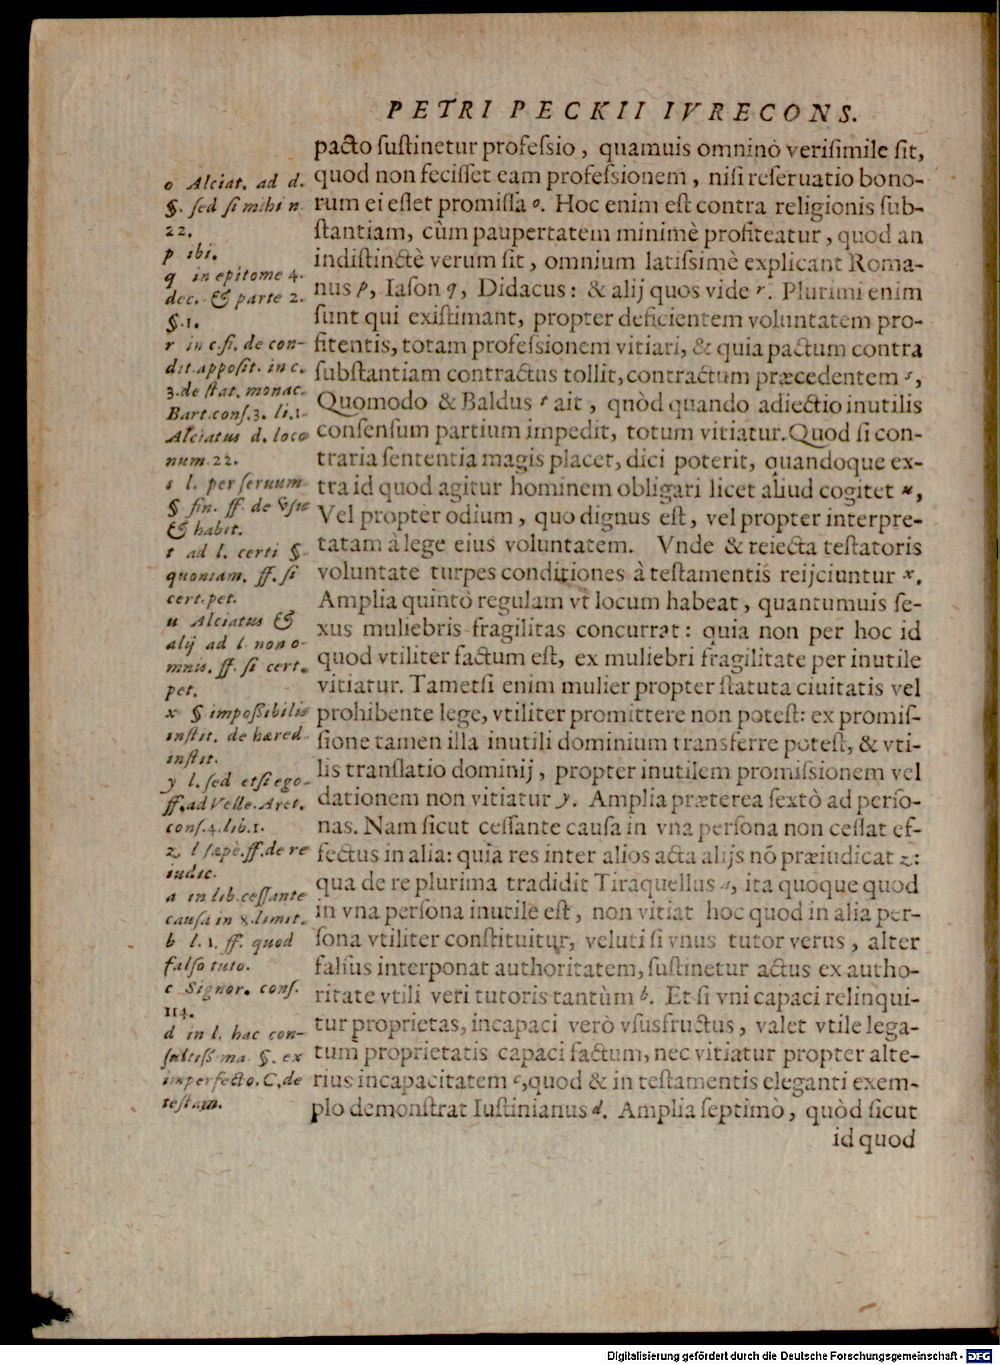 PETRI PECKII IVRECONS.
pacto ſuſtinetur profeſsio, quamuis omninò veriſimile ſit,
quod non feciſſet eam profeſsionem, niſi reſeruatio bono-
rum ei eſſet promiſſa o. Hoc enim eſt contra religionis ſub-
ſtantiam, cùm paupertatem minimè profiteatur, quod an
indiſtinctè verum ſit, omnium latiſsimè explicant Roma-
nus p, Iaſon q, Didacus: & alij quos vide r. Plurimi enim
ſunt qui exiſtimant, propter deficientem voluntatem pro-
fitentis, totam profeſsionem vitiari, & quia pactum contra
ſubſtantiam contractus tollit, contractum præcedentem s,
Quomodo & Baldus t ait, qnòd quando adiectio inutilis
conſenſum partium impedit, totum vitiatur. Quod ſi con-
traria ſententia magis placet, dici poterit, quandoque ex-
tra id quod agitur hominem obligari licet aliud cogitet u,
Vel propter odium, quo dignus eſt, vel propter interpre-
tatam à lege eius voluntatem. Vnde & reiecta teſtatoris
voluntate turpes conditiones à teſtamentis reijciuntur x.
Amplia quintò regulam vt locum habeat, quantumuis ſe-
xus muliebris fragilitas concurrat: quia non per hoc id
quod vtiliter factum eſt, ex muliebri fragilitate per inutile
vitiatur. Tametſi enim mulier propter ſtatuta ciuitatis vel
prohibente lege, vtiliter promittere non poteſt: ex promiſ-
ſione tamen illa inutili dominium transferre poteſt, & vti-
lis tranſlatio dominij, propter inutilem promiſsionem vel
dationem non vitiatur y. Amplia præterea ſextò ad perſo-
nas. Nam ſicut ceſſante cauſa in vna perſona non ceſſat ef-
fectus in alia: quia res inter alios acta alijs nō præiudicat z:
qua de re plurima tradidit Tiraquellus a, ita quoque quod
in vna perſona inutile eſt, non vitiat hoc quod in alia per-
ſona vtiliter conſtituitur, veluti ſi vnus tutor verus, alter
falſus interponat authoritatem, ſuſtinetur actus ex autho-
ritate vtili veri tutoris tantùm b. Et ſi vni capaci relinqui-
tur proprietas, incapaci verò vſusfructus, valet vtile lega-
tum proprietatis capaci factum, nec vitiatur propter alte-
rius incapacitatem c, quod & in teſtamentis eleganti exem-
plo demonſtrat Iuſtinianus d. Amplia ſeptimò, quòd ſicut
id quod
o Alciat. ad d.
§. ſed ſi mihi n
22.
p ibi.
q in epitome 4.
dec. & parte 2.
§.1.
r in c.fi. de con-
dit.appoſit. in c.
3.de ſtat. monac.
Bart.conſ.3. li.1.
Alciatus d. loco
num.22.
s l. per ſeruum
§ fin. ff. de vſu
& habit.
t ad l. certi §
quoniam. ff. ſi
cert.pet.
u Alciatus &
alij ad l. non o-
mnis. ff. ſi cert.
pet.
x § impoſsibilis
inſtit. de hæred.
inſtit.
y l. ſed etſi ego.
ff.ad Velle. Aret.
conſ.4.lib.1.
z l ſæpè.ff.de re
iudic.
a in lib.ceſſante
cauſa in 8.limit.
b l. 1. ff. quod
falſo tuto.
c Signor. conſ.
114.
d in l. hac con-
ſultiſsima §. ex
imperfecto. C.de
teſtam.
Digitalisierung gefördert durch die Deutsche Forschungsgemeinschaft - DFG